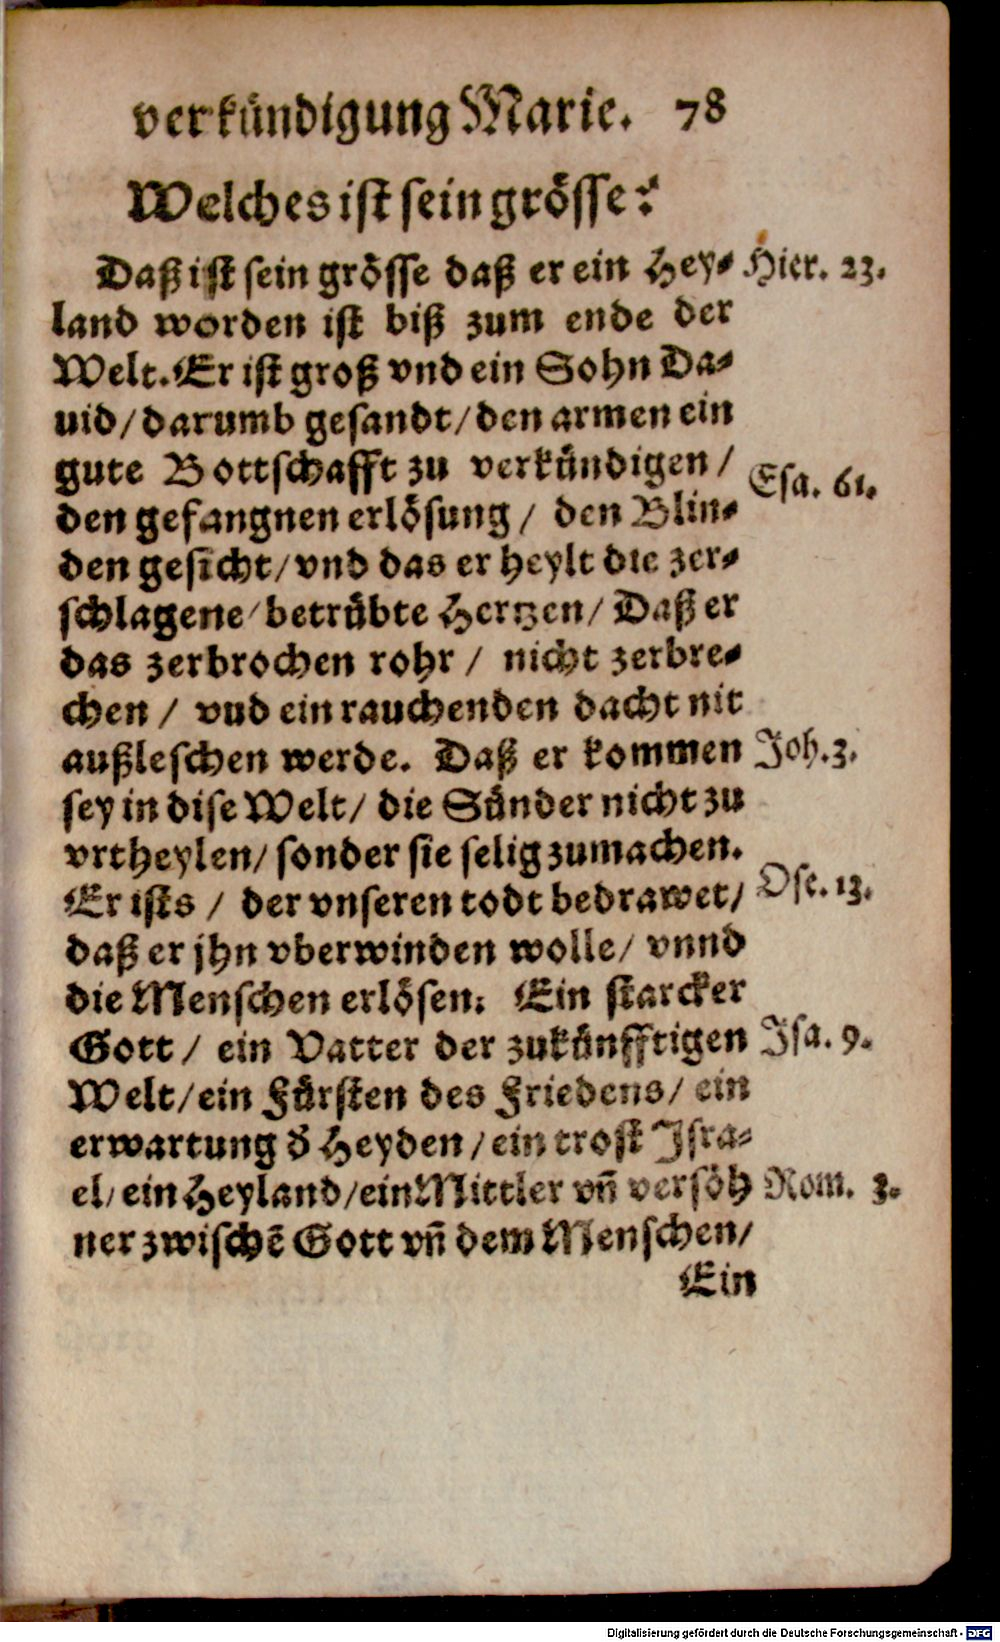 verkündigung Marie. 78
Welches ist sein grösse?
Daß ist sein grösse daß er ein Hey- Hier. 23.
land worden ist biß zum ende der
Welt. Er ist groß vnd ein Sohn Da-
uid/ darumb gesandt/ den armen ein
gute Bottschafft zu verkündigen/
Esa. 61.
den gefangnen erlösung/ den Blin-
den gesicht/ vnd das er heylt die zer-
schlagene/ betrübte Hertzen/ Daß er
das zerbrochen rohr/ nicht zerbre-
chen/ vnd ein rauchenden dacht nit
außleschen werde. Daß er kommen Joh. 3.
sey in dise Welt/ die Sünder nicht zu
vrtheylen/ sonder sie selig zumachen.
Er ists/ der vnseren todt bedrawet/ Ose. 13.
daß er jhn vberwinden wolle/ vnnd
die Menschen erlösen: Ein starcker
Gott/ ein Vatter der zukünfftigen Isa. 9.
Welt/ ein Fürsten des Friedens/ ein
erwartung d̄ Heyden/ ein trost Isra-
el/ ein Heyland/ ein Mittler vn̄ versöh Rom. 3.
ner zwischē Gott vn̄ dem Menschen/
Ein
Digitalisierung gefördert durch die Deutsche Forschungsgemeinschaft - DFG